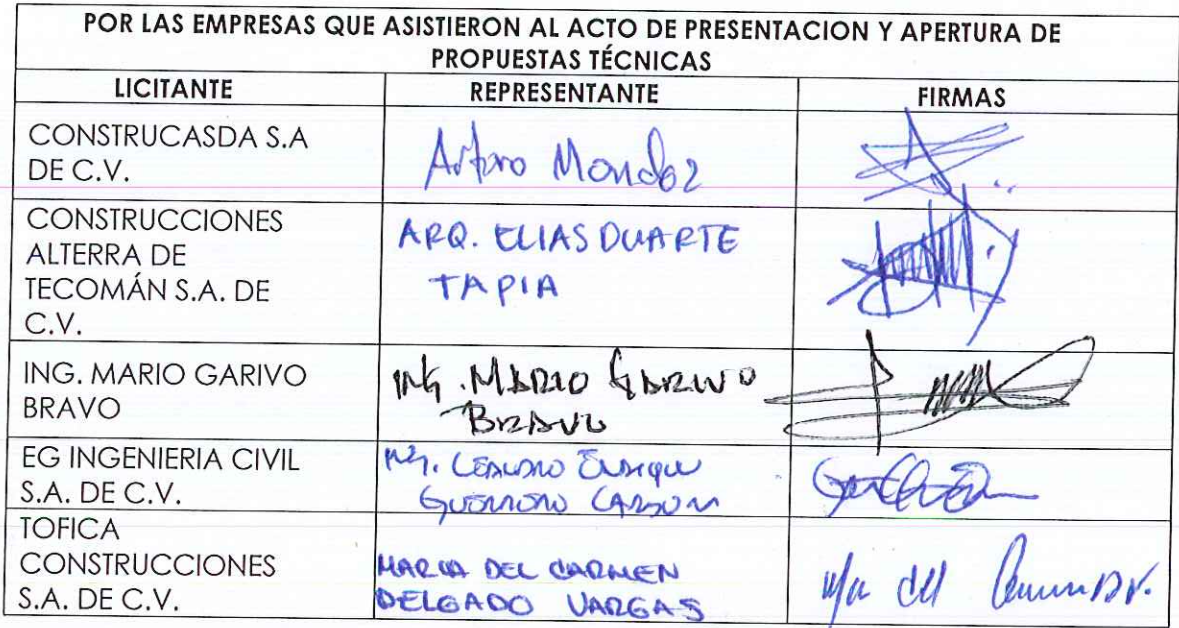 POR LAS EMPRESAS QUE ASISTIERON AL ACTO DE PRESENTACION Y APERTURA DE
PROPUESTAS TÉCNICAS
LICITANTE REPRESENTANTE FIRMAS
CONSTRUCASDA S.A
DE C.V.
Arturo Mendoz
CONSTRUCCIONES
ALTERRA DE
TECOMÁN S.A. DE
C.V.
ARQ. ELIAS DUARTE
TAPIA
ING. MARIO GARIVO
BRAVO
ING. MARIO GARIVO
BRAVO
EG INGENIERIA CIVIL
S.A. DE C.V.
ING. Enrique
Guerrero
TOFICA
CONSTRUCCIONES
S.A. DE C.V.
MARIA DEL CARMEN
DELGADO VARGAS
Ma del Carmen D.V.